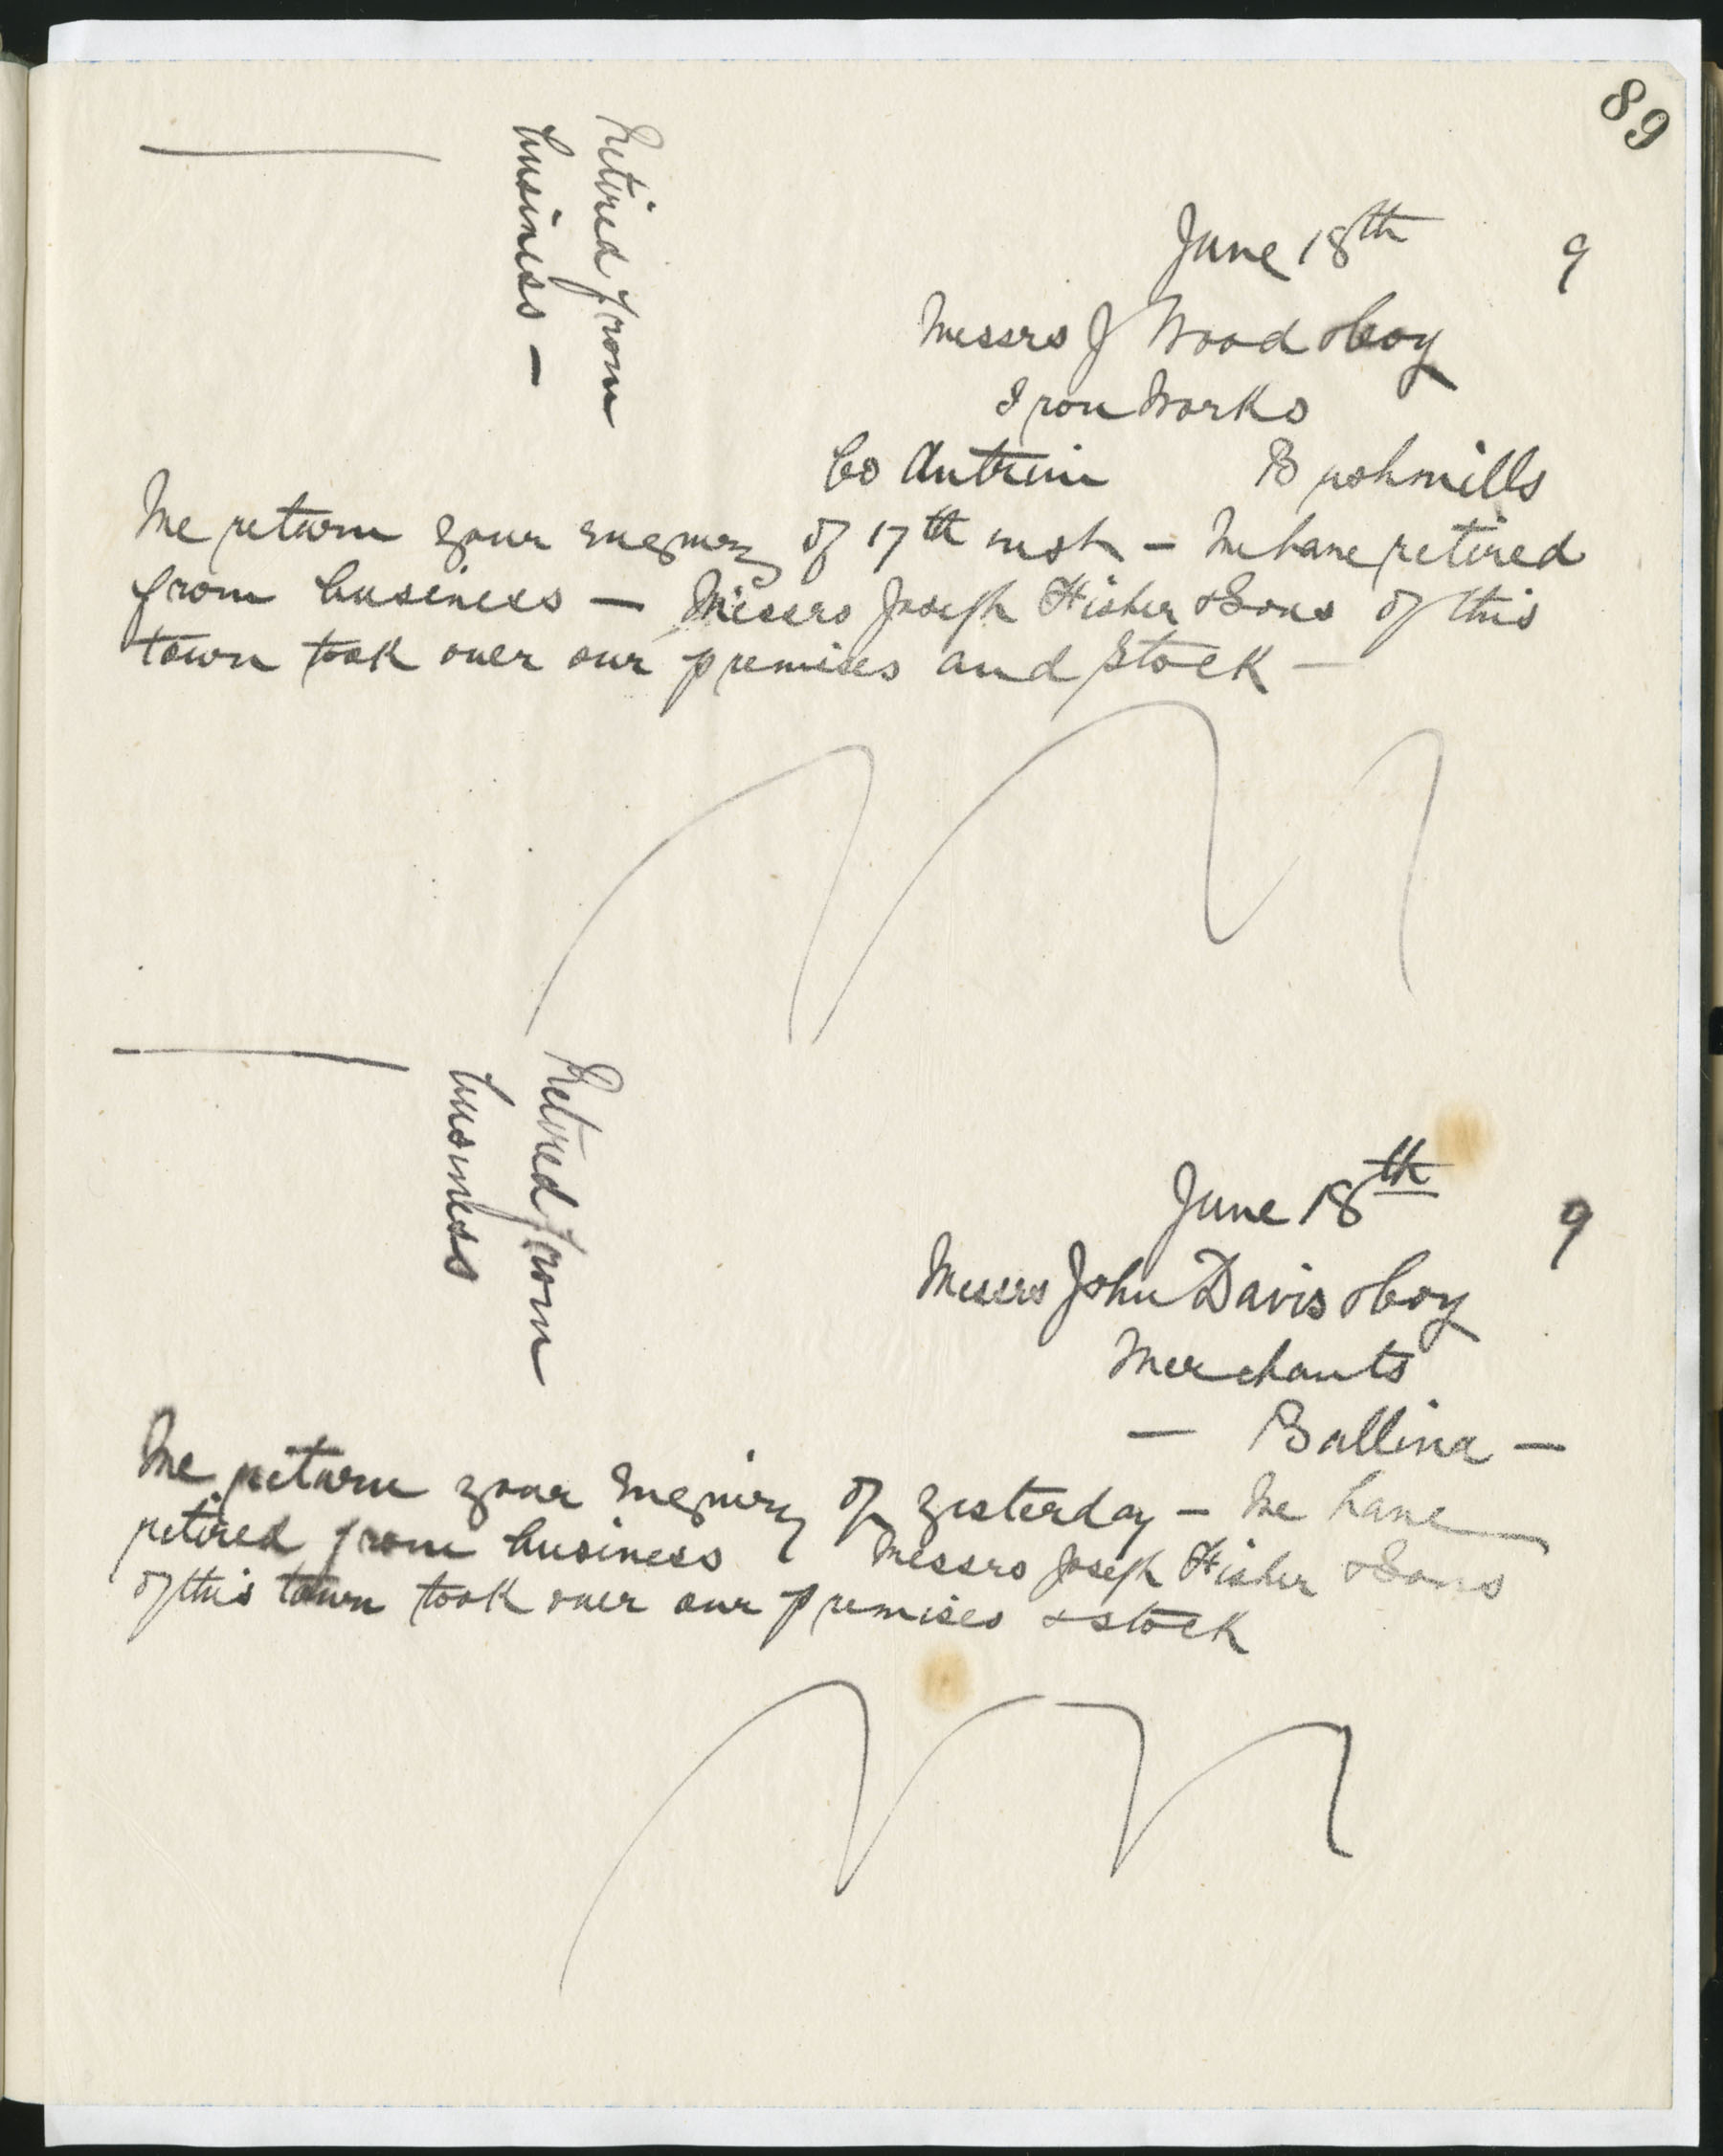 89
Retired from
business –
June 18th 9
Messrs J Wood & Coy
Iron Works
Co Antrim Bushmills
We return your enquiry of 17th inst – We have retired
from business – Messrs Joseph Fisher & Sons of this
town took over our premises and stock –
Retired from
business
June 18th 9
Messrs John Davis & Coy
Merchants
– Ballina –
We return your enquiry of yesterday – We have
retired from business Messrs Joseph Fisher & Sons
of this town took over our premises & stock